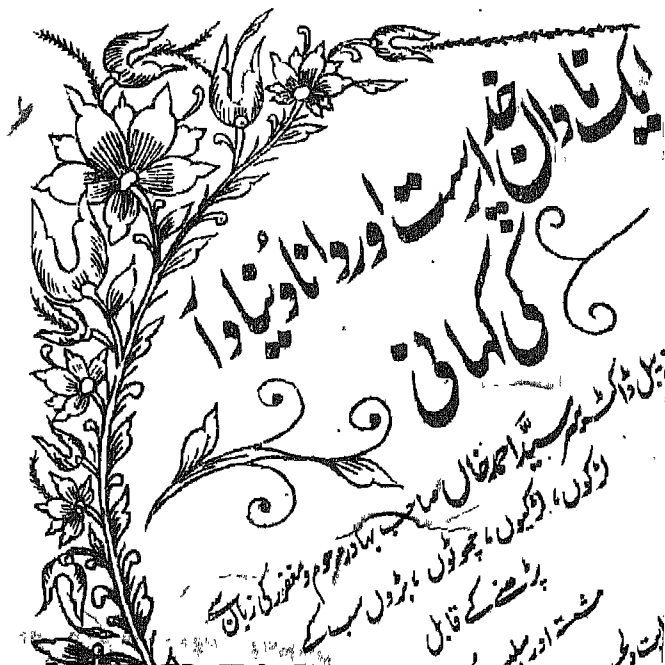 ایک نادان خدا پرست اور دانا دُنیا دار
کی کہانی
ڈاکٹر سر سیّد احمد خاں صاحب بہادر مرحوم و مغفور کی زبان سے
لڑکوں، لڑکیوں، چھوٹوں، بڑوں سب کے
پڑھنے کے قابل
شستہ اور